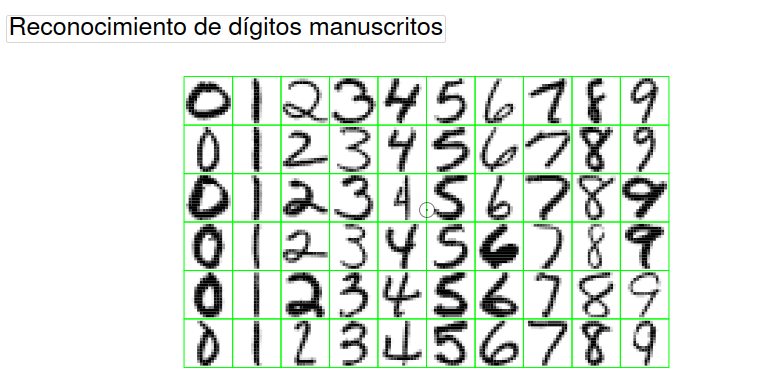 Reconocimiento de dígitos manuscritos
0 1 2 3 4 5 6 7 8 9
0 1 2 3 4 5 6 7 8 9
0 1 2 3 4 5 6 7 8 9
0 1 2 3 4 5 6 7 8 9
0 1 2 3 4 5 6 7 8 9
0 1 2 3 4 5 6 7 8 9